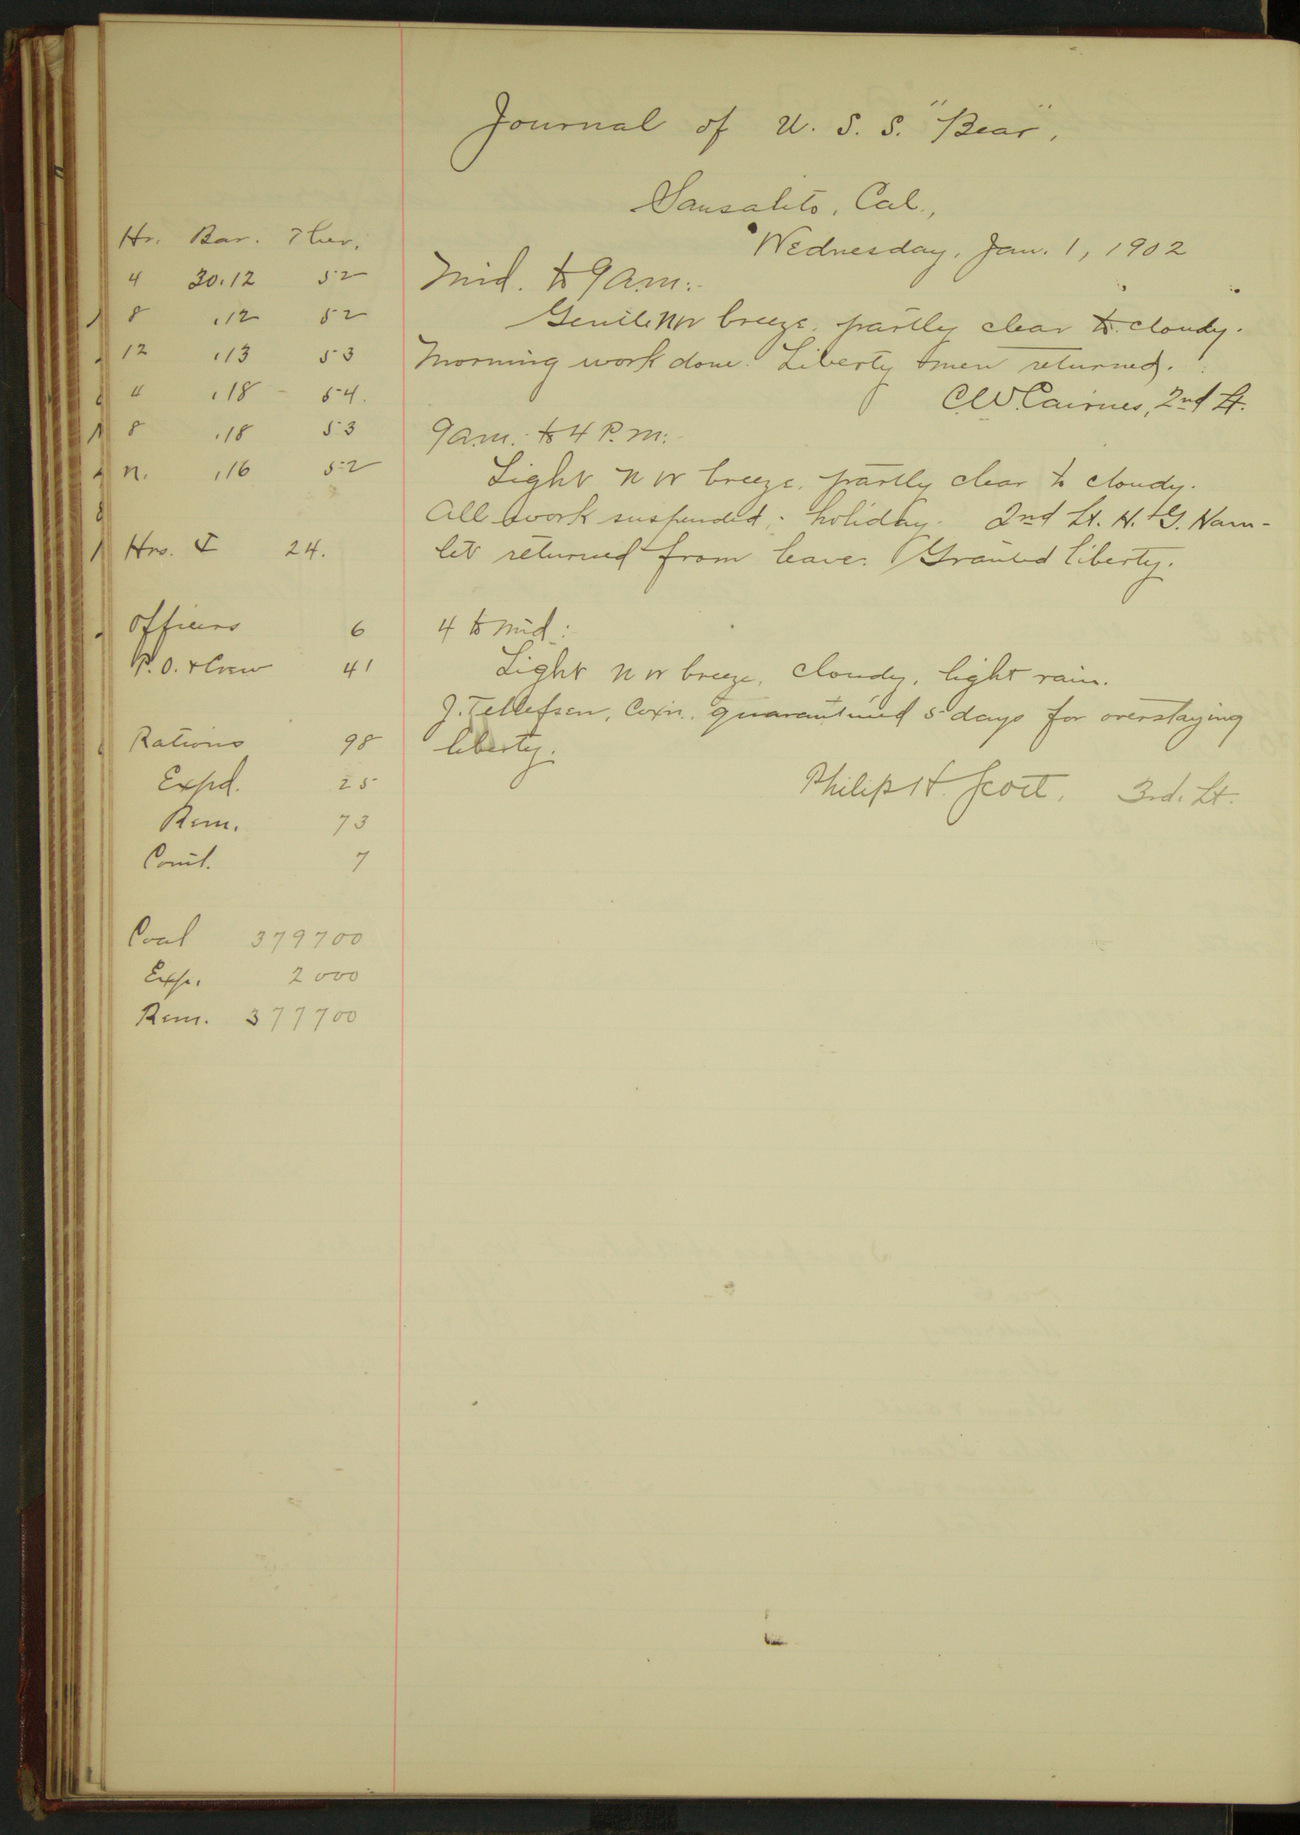 Journal of U. S. S. "Bear".
Sausalito, Cal.,
Wednesday, Jan. 1, 1902
Hr. Bar. Ther.
4 30.12 52
8 .12 52
12 .13 53
4 .18 54.
8 .18 53
n. .16 52
Hrs. 24.
Officers 6
P.O. & Crew 41
Rations 98
Expd. 25
Rem. 73
Com'd. 7
Coal 379700
Exp. 2000
Rem. 377700
Mid. to 9 a.m.:
Gentle NW breeze, partly clear to cloudy.
Morning work done. Liberty men returned.
C.W. Cairnes, 2nd Lt.
9 a.m. to 4 P.m:
Light NW breeze, partly clear to cloudy.
All work suspended; holiday. 2nd Lt. H. G. Ham-
let returned from leave. Granted liberty.
4 to mid:
Light NW breeze, cloudy, light rain.
J. Tellefsen, Coxn. quarantined 5 days for overstaying
liberty.
Philip H. Scott, 3rd. Lt.